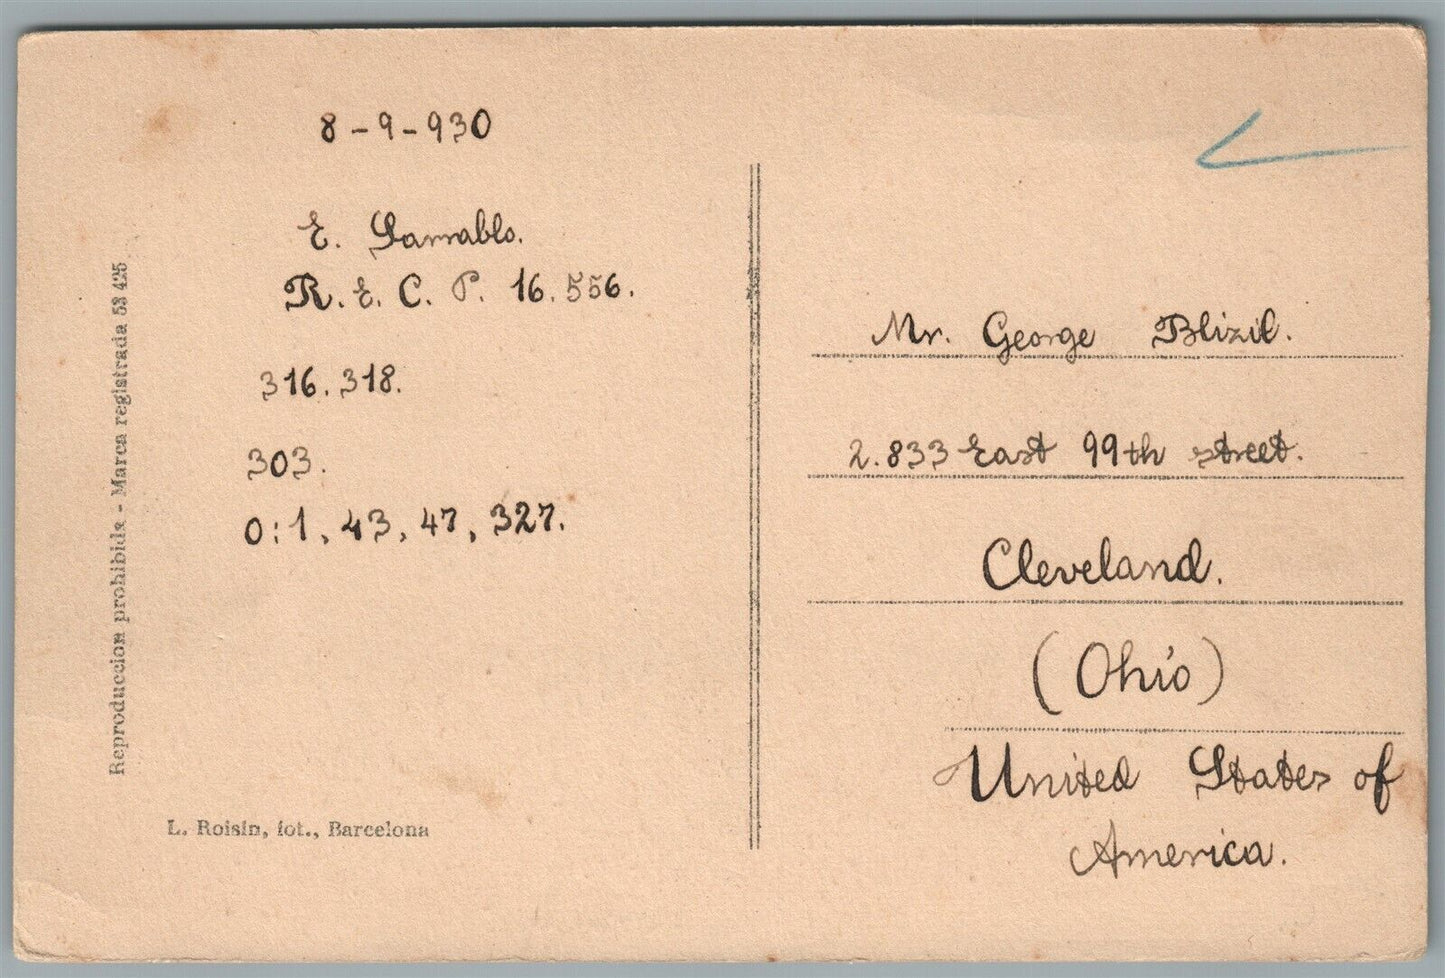 8-9-930
E. Sarrablo.
R. E. C. P. 16.556.
316.318.
303.
0:1, 43, 47, 327.
Reproduccion prohibida - Marca registrada 53 425
L. Roisin, fot., Barcelona
Mr. George Blizil.
2.833 East 99th street.
Cleveland.
(Ohio)
United States of
America.